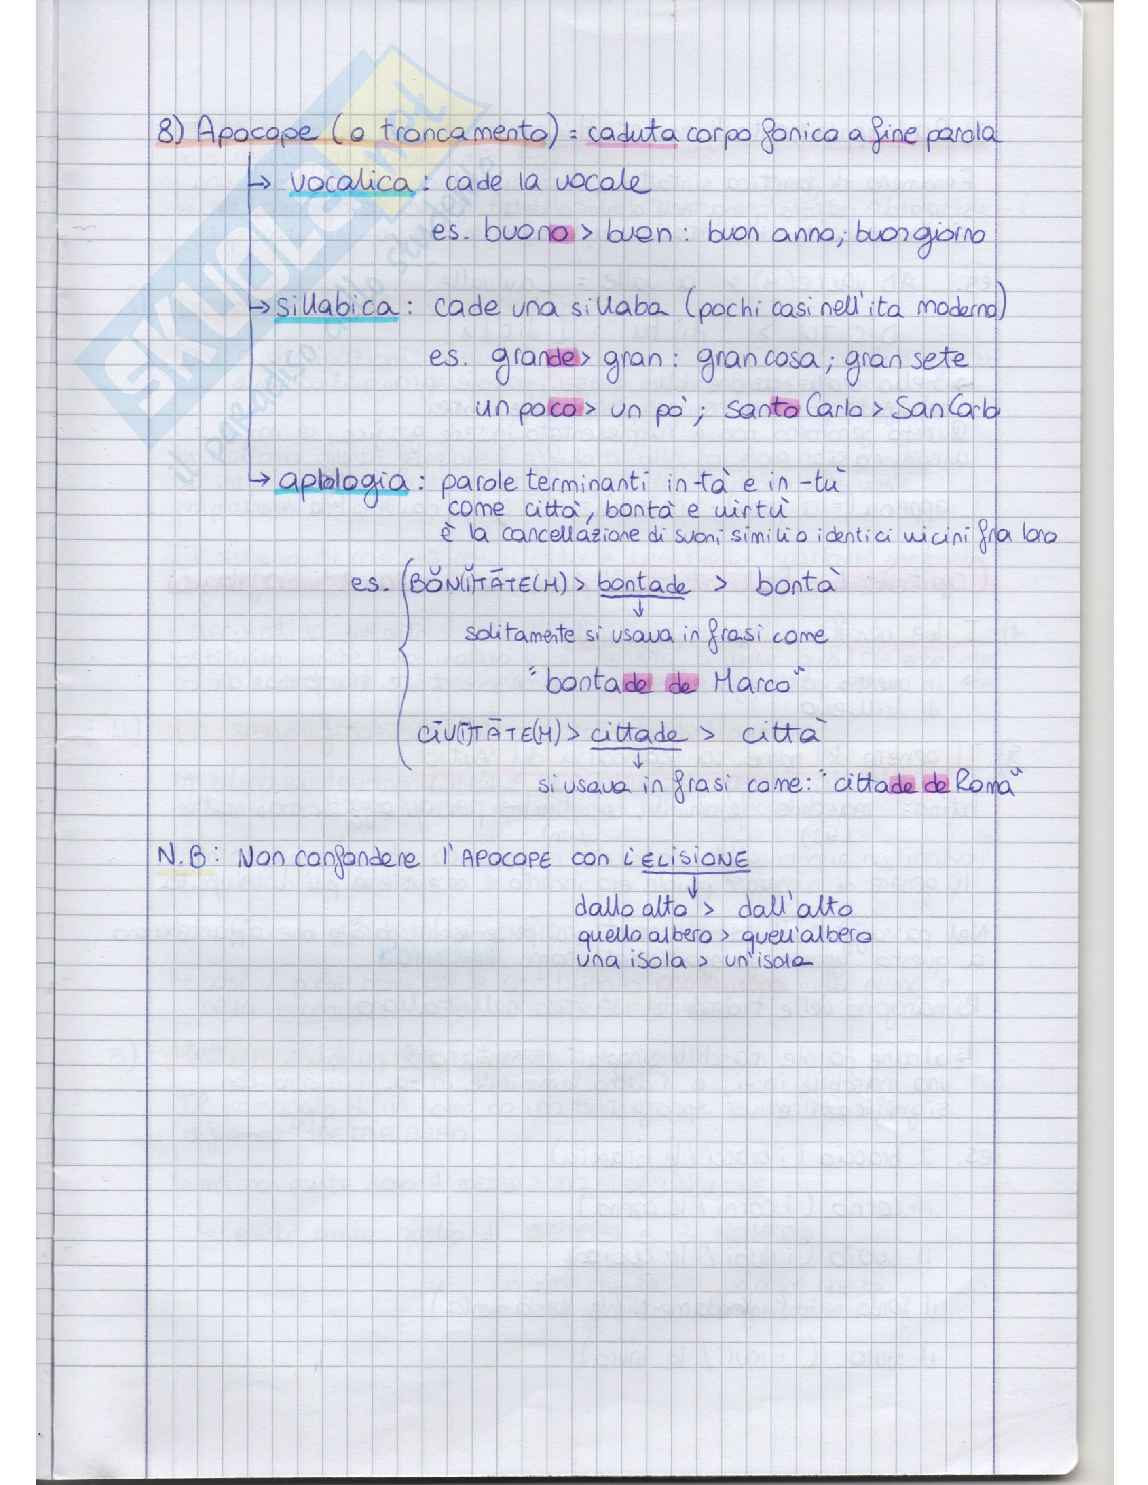 8) Apocope (o troncamento) = caduta corpo fonico a fine parola
→ vocalica : cade la vocale
es. buono > buon : buon anno; buongiorno
→ sillabica : cade una sillaba (pochi casi nell'ita moderno)
es. grande > gran : gran cosa ; gran sete
un poco > un po' ; santo Carlo > San Carlo
→ aplologia : parole terminanti in -tà e in -tù
come città, bontà e virtù
è la cancellazione di suoni simili o identici vicini fra loro
es. (BŎN(Ĭ)TĀTE(M) > bontade > bontà
↓
solitamente si usava in frasi come
"bontade de Marco"
CĪV(Ĭ)TĀTE(M) > cittade > città
↓
si usava in frasi come: "cittade de Roma"
N.B : Non confondere l'APOCOPE con l'ELISIONE
↓
dallo alto > dall'alto
quello albero > quell'albero
una isola > un'isola
SKUOLA.net
il paradiso dello studente